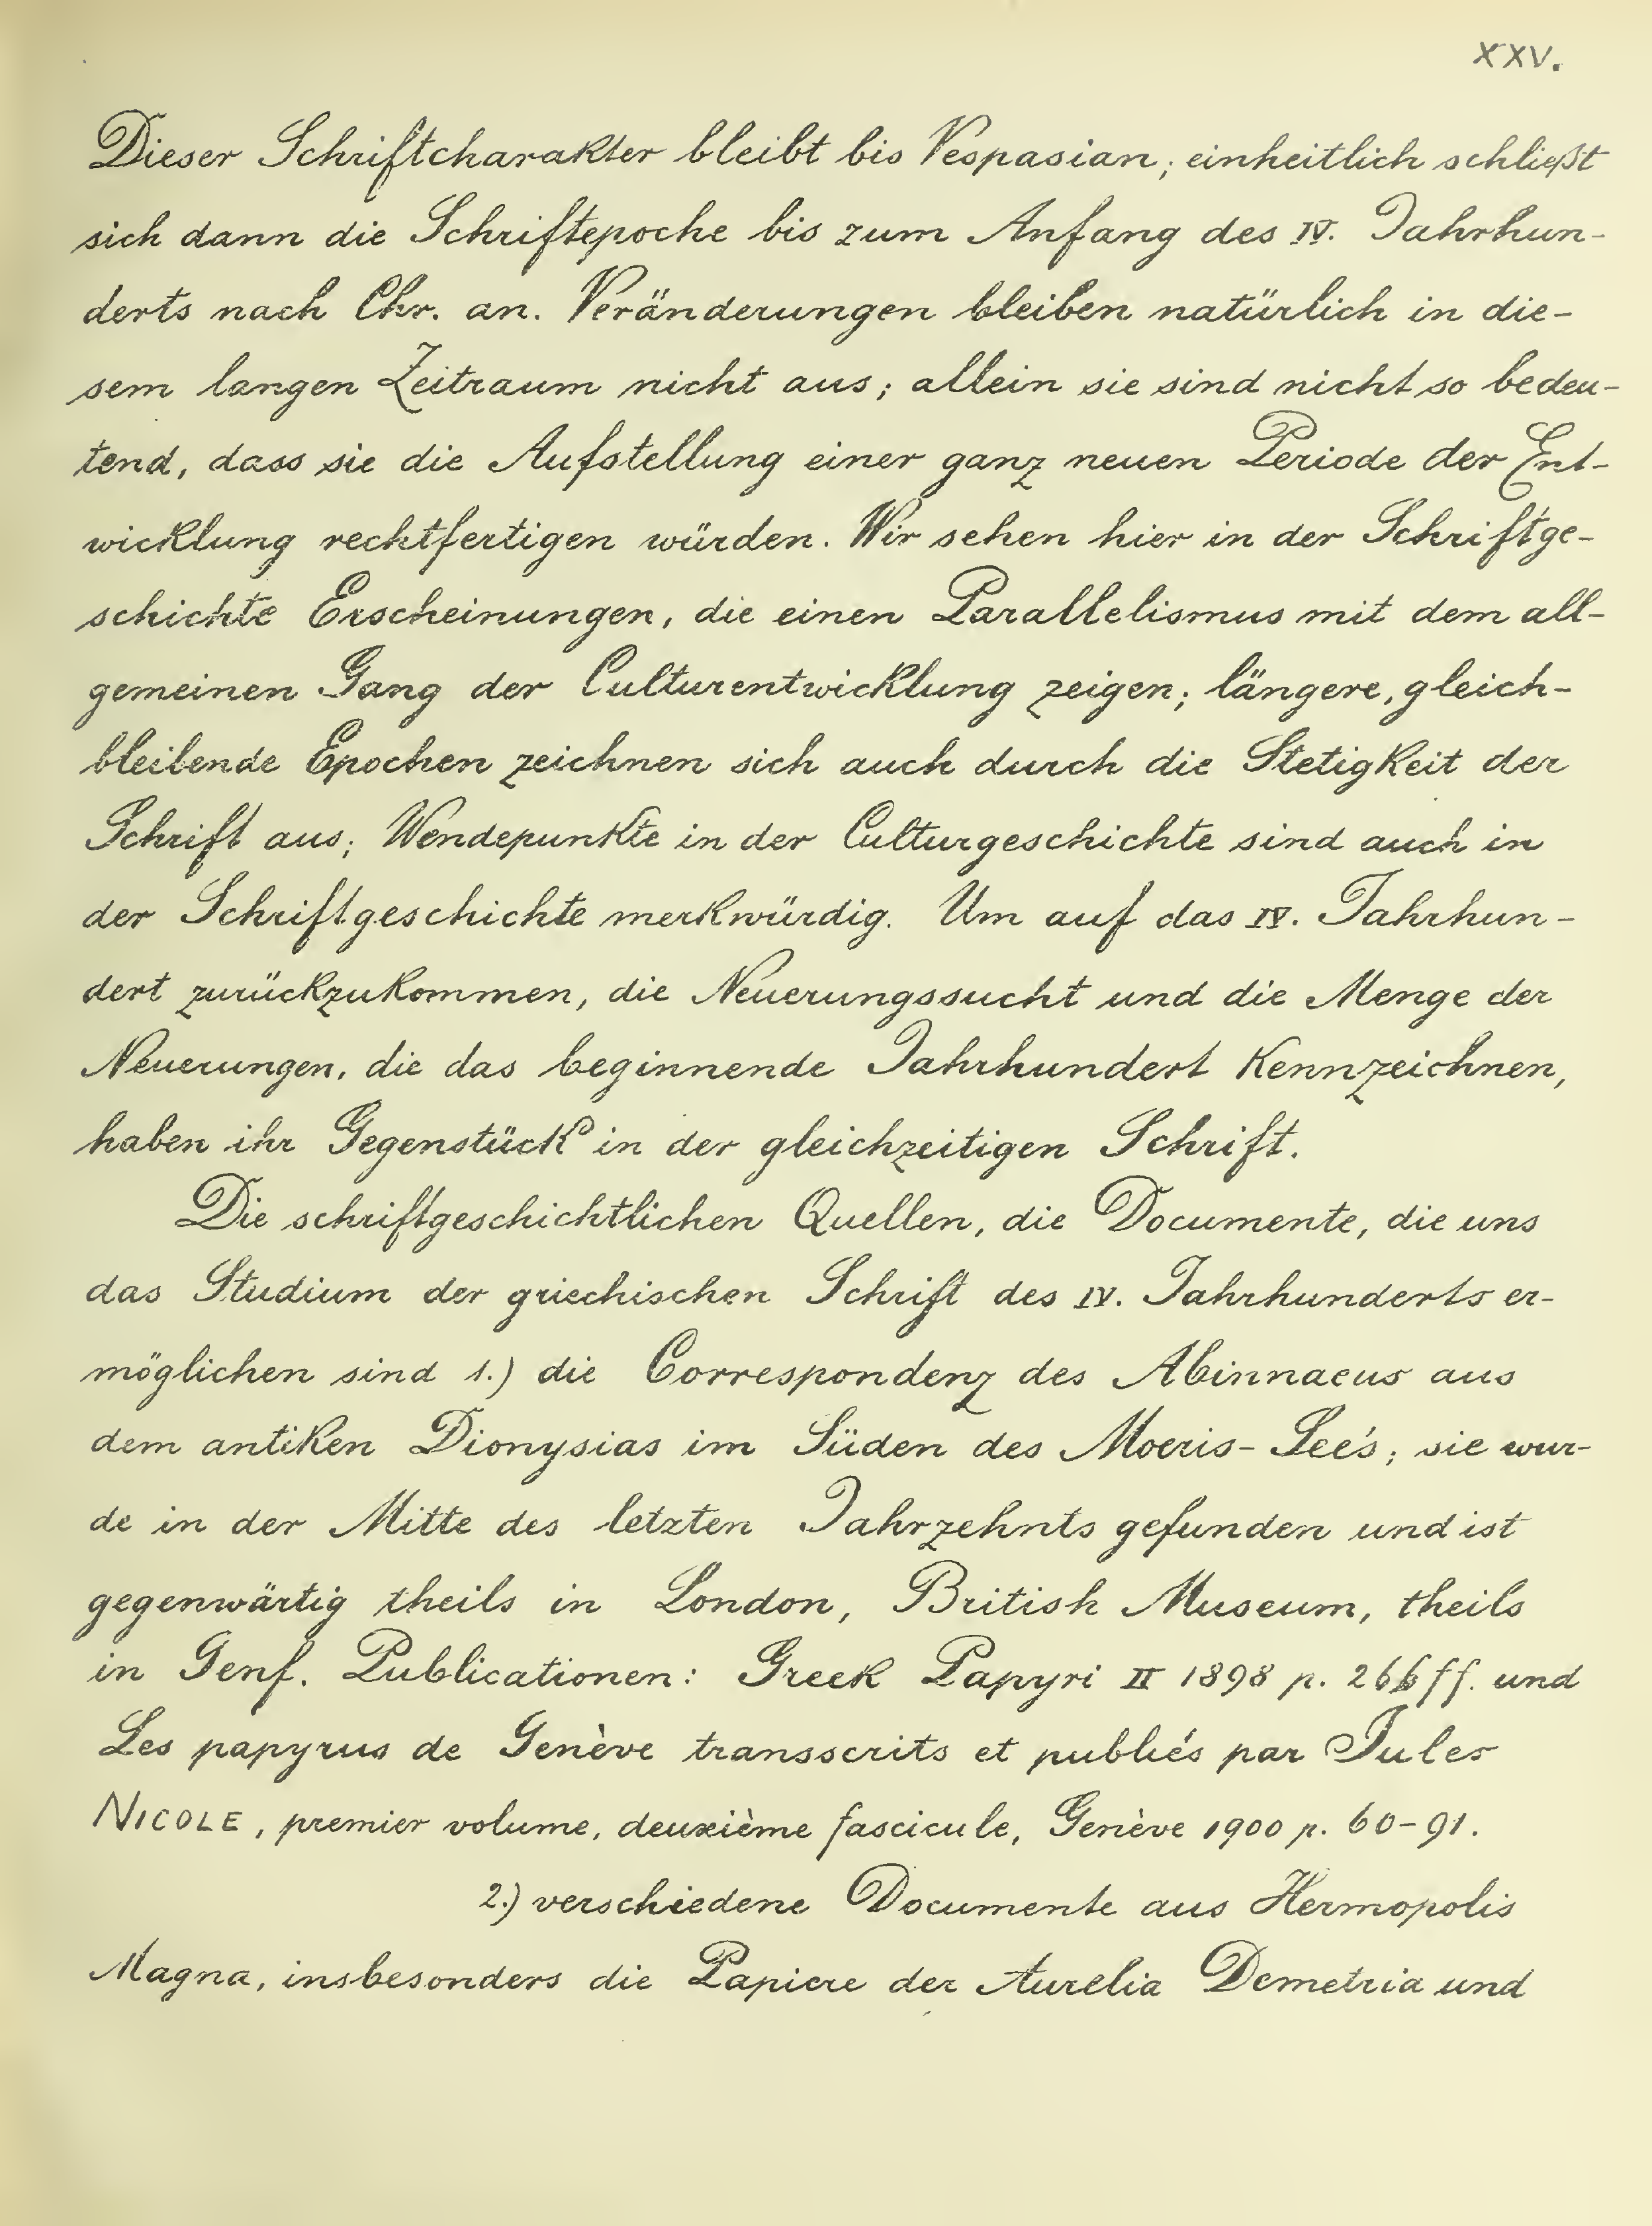 XXV.
Dieser Schriftcharakter bleibt bis Vespasian; einheitlich schließt
sich dann die Schriftepoche bis zum Anfang des IV. Jahrhun-
derts nach Chr. an. Veränderungen bleiben natürlich in die-
sem langen Zeitraum nicht aus; allein sie sind nicht so bedeu-
tend, dass sie die Aufstellung einer ganz neuen Periode der Ent-
wicklung rechtfertigen würden. Wir sehen hier in der Schriftge-
schichte Erscheinungen, die einen Parallelismus mit dem all-
gemeinen Gang der Culturentwicklung zeigen; längere, gleich-
bleibende Epochen zeichnen sich auch durch die Stetigkeit der
Schrift aus; Wendepunkte in der Culturgeschichte sind auch in
der Schriftgeschichte merkwürdig. Um auf das IV. Jahrhun-
dert zurückzukommen, die Neuerungssucht und die Menge der
Neuerungen, die das beginnende Jahrhundert kennzeichnen,
haben ihr Gegenstück in der gleichzeitigen Schrift.
Die schriftgeschichtlichen Quellen, die Documente, die uns
das Studium der griechischen Schrift des IV. Jahrhunderts er-
möglichen sind 1.) die Correspondenz des Abinnaeus aus
dem antiken Dionysias im Süden des Moeris-See's; sie wur-
de in der Mitte des letzten Jahrzehnts gefunden und ist
gegenwärtig theils in London, British Museum, theils
in Genf. Publicationen: Greek Papyri II 1898 p. 266 ff. und
Les papyrus de Genève transscrits et publiés par Jules
NICOLE, premier volume, deuxième fascicule, Genève 1900 p. 60-91.
2.) verschiedene Documente aus Hermopolis
Magna, insbesonders die Papiere der Aurelia Demetria und